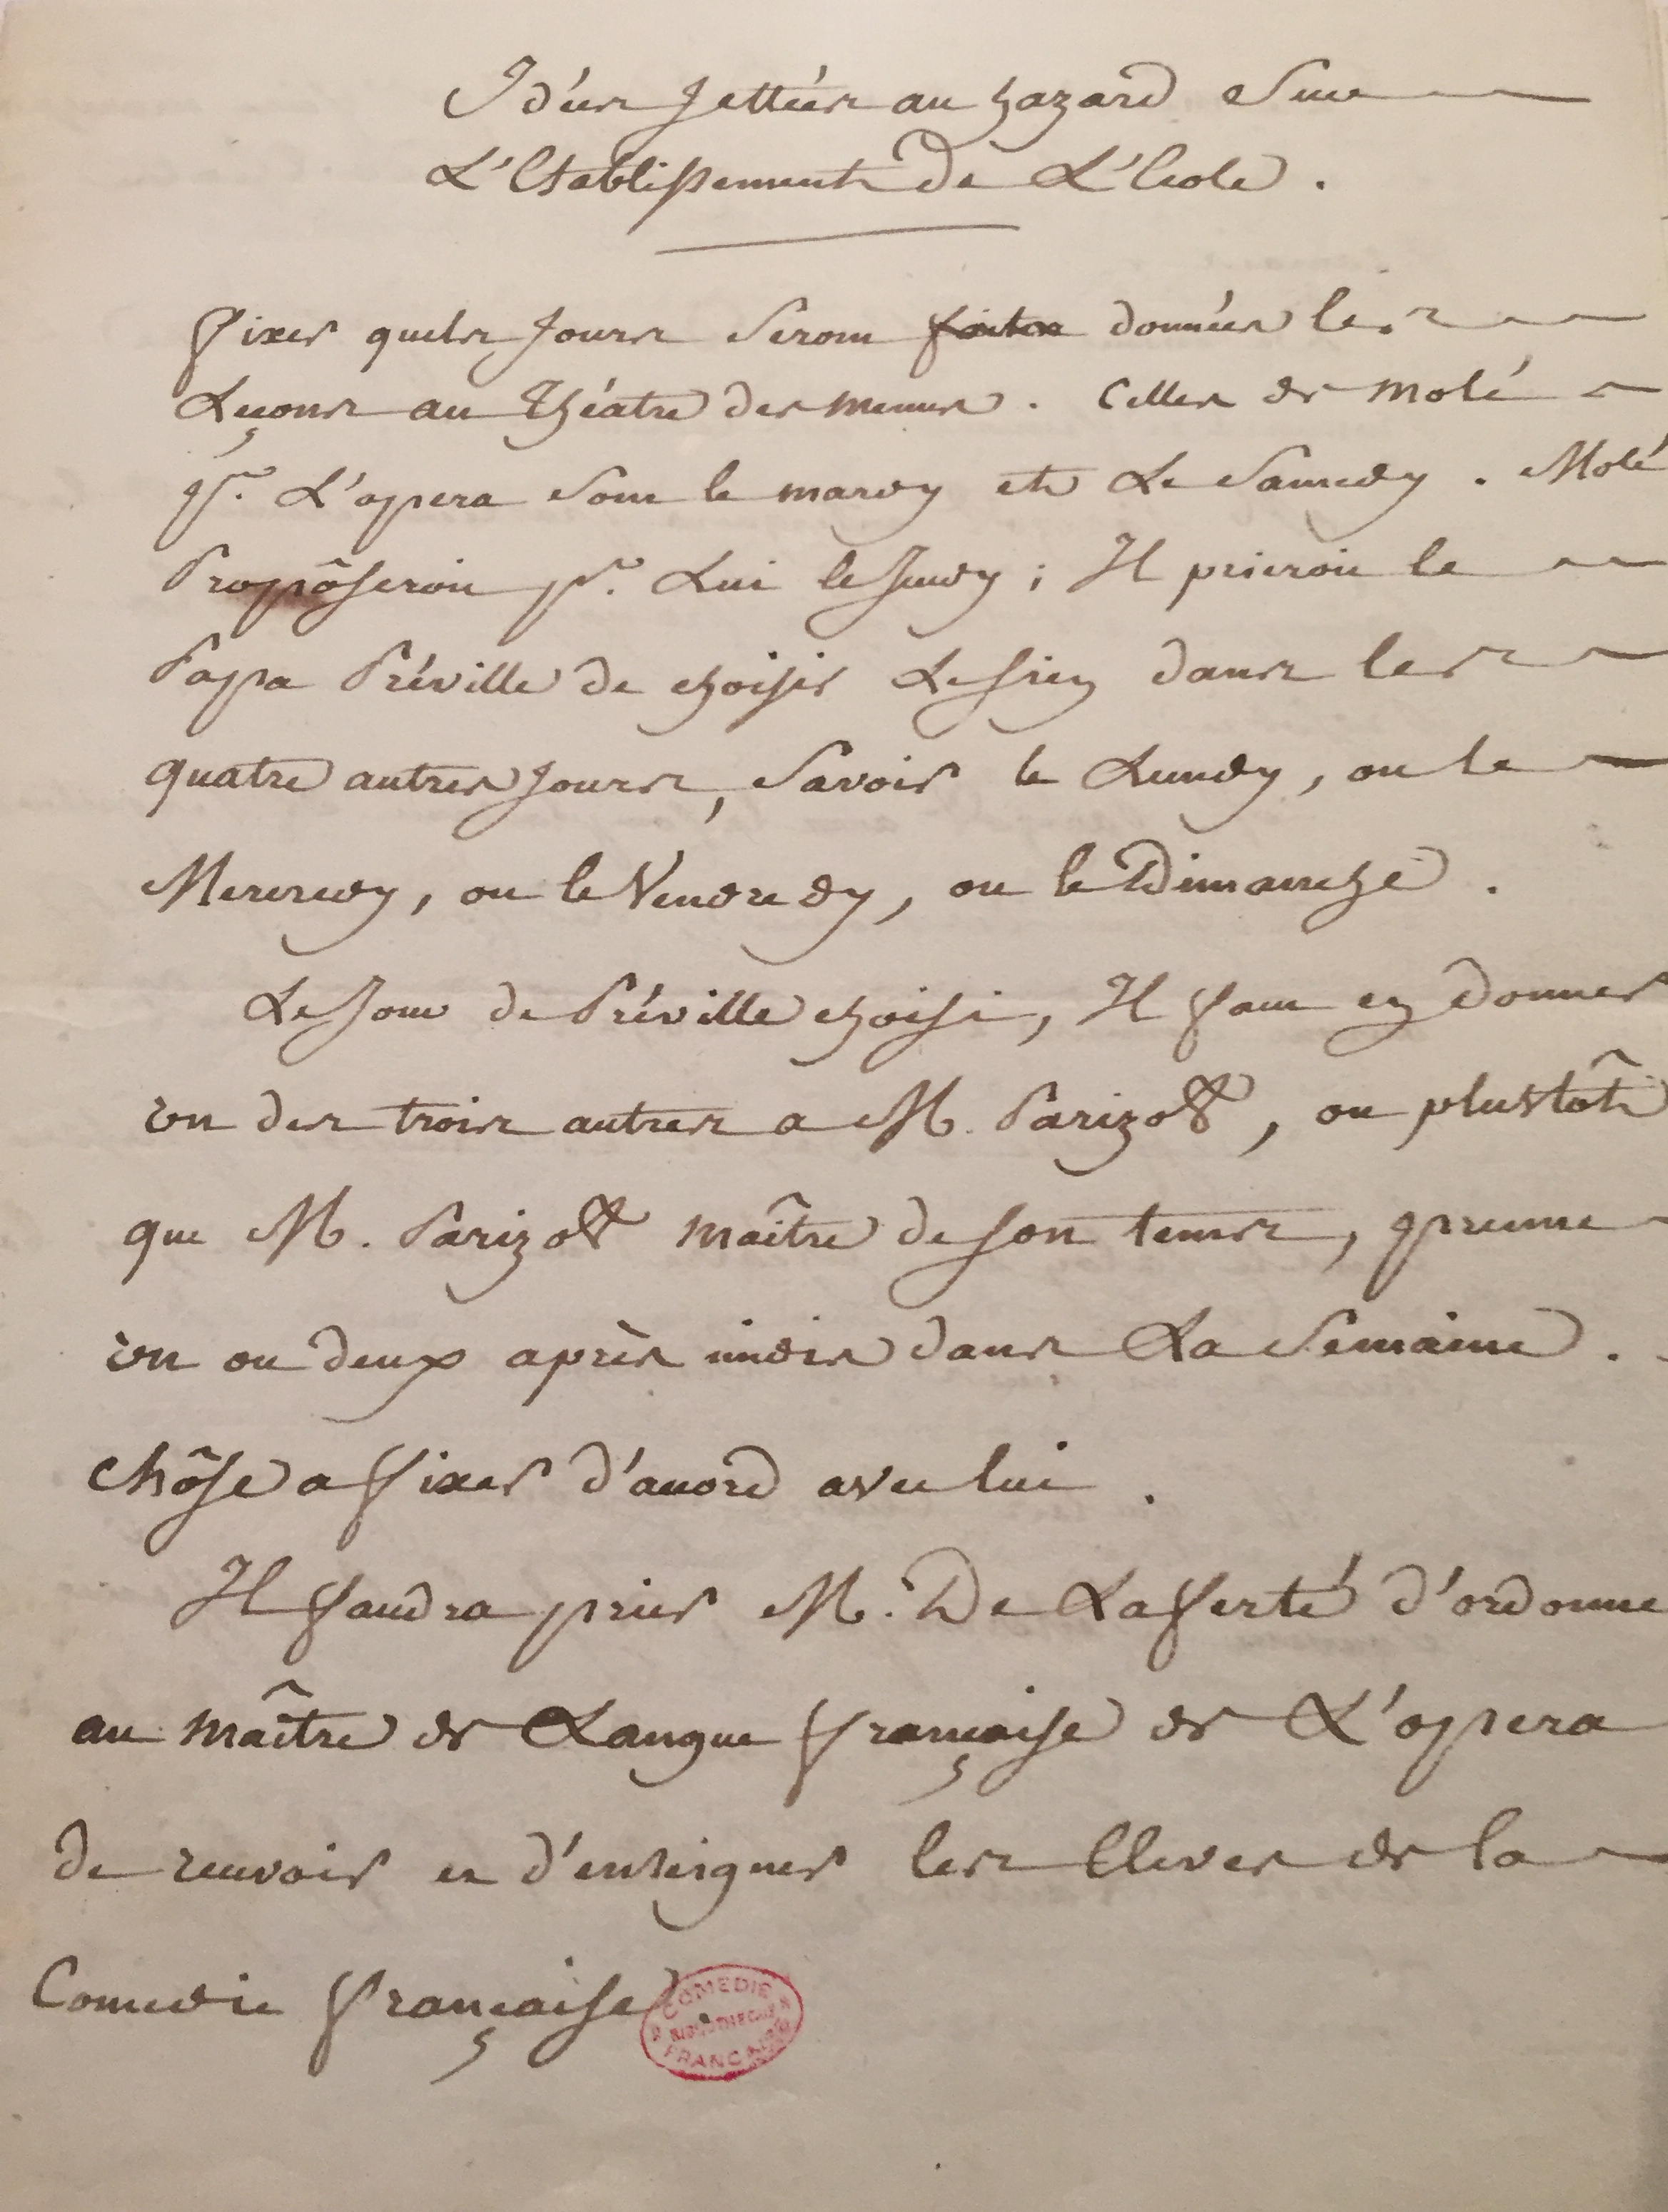 Idées Jettées au hazard Sur
L'Etablissement De L'Ecole.
fixer quels Jours Seront faites données les
Leçons au Théatre des menus. Celles de Molé
pr. L'opera Sont le mardy et Le Samedy. Molé
Propôseroit pr. Lui le Jeudy; Il prieroit le
Papa Préville de choisir Le sien dans les
quatre autres Jours, Savoir le Lundy, ou le
Mercredy, ou le Vendredy, ou le Dimanche.
Le Jour de Préville choisi, Il faut en donner
un des trois autres a M. Parizot, ou plustôt
que M. Parizot maître de son tems, prenne
un ou deux après midis dans La Semaine.
Chôse a fixer d'acord avec lui.
Il faudra prier M. De Laferté d'ordonne
au maître de Langue française de L'opera
de recevoir et d'enseigner les Eleves de la
Comedie française
COMEDIE
BIBLIOTHEQUE
FRANCAISE